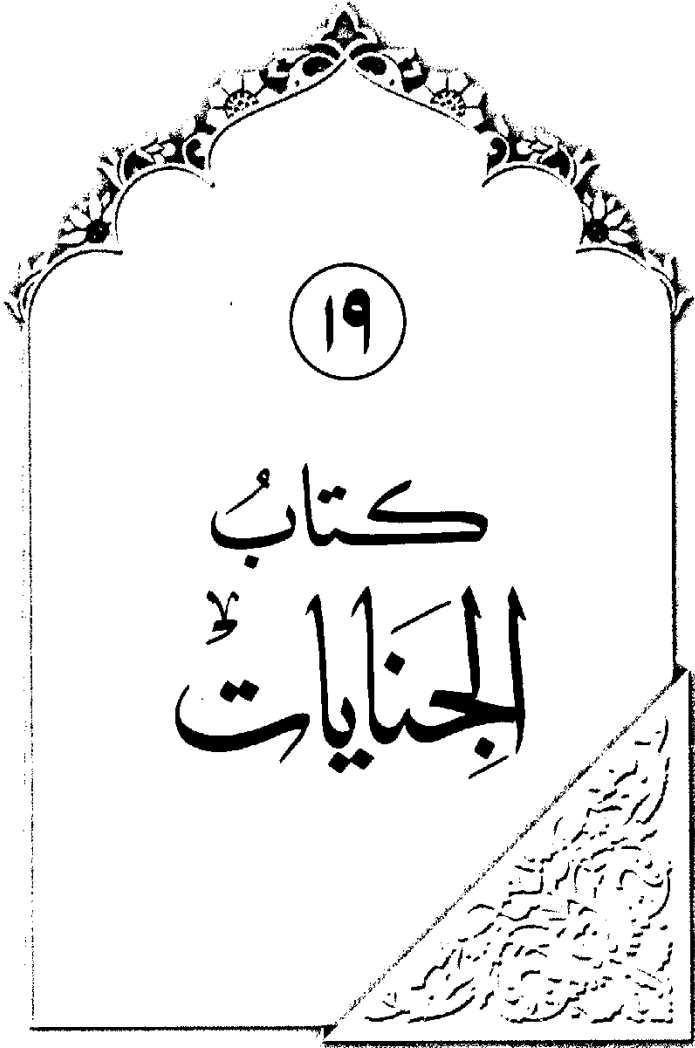 ١٩
كتابُ
الجِنَايات